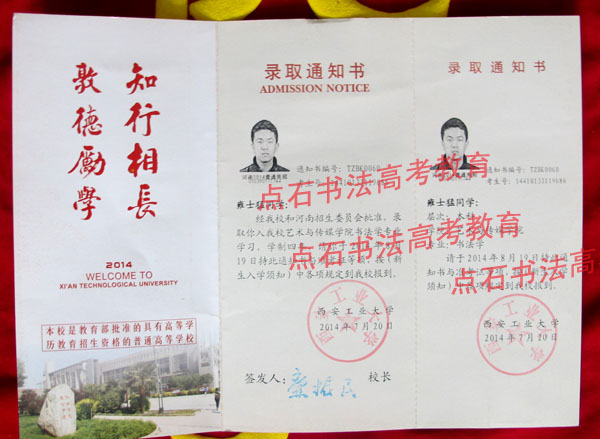 知行相長
敦德勵學
2014
WELCOME TO
XI'AN TECHNOLOGICAL UNIVERSITY
本校是教育部批准的具有高等学
历教育招生资格的普通高等学校
录取通知书
ADMISSION NOTICE
通知书编号: TZBK0060
考生号:
雍士猛同学:
经我校和河南招生委员会批准, 录
取你入我校艺术与传媒学院书法学专业
学习, 学制四年。请你于2014年8月
19日持此通知书
生入学须知》中各项规定到我校报到。
西安工业大学
2014年7月20日
签发人:
校长
录取通知书
通知书编号: TZBK0060
考生号: 14410133119686
雍士猛同学:
层次: 本科
传媒学院
专业: 书法学
请于2014年8月19日持此通
知书
规定到我校报到。
西安工业大学
2014年7月20日
西安工业大学
西安工业大学
点石书法高考教育
点石书法高考教育
点石书法高